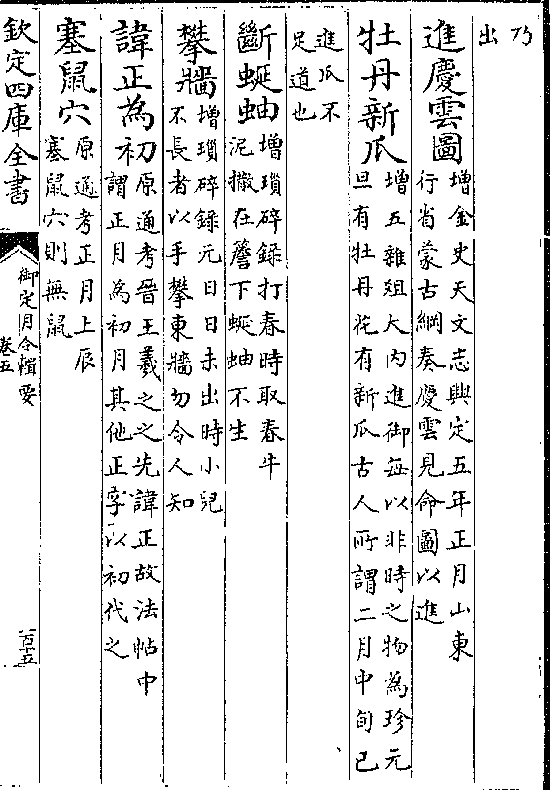 乃
出
進慶雲圖
增金史天文志興定五年正月山東
行省蒙古綱奏慶雲見命圖以進
牡丹新瓜
增五雜組大內進御每以非時之物為珍元
旦有牡丹花有新瓜古人所謂二月中旬已
進瓜不
足道也
斷蜒蚰
增瑣碎錄打春時取春牛
泥撒在簷下蜒蚰不生
攀牆
增瑣碎錄元日日未出時小兒
不長者以手攀東牆勿令人知
諱正為初
原通考晉王羲之之先諱正故法帖中
謂正月為初月其他正字以初代之
塞鼠穴
原通考正月上辰
塞鼠穴則無鼠
欽定四庫全書
御定月令輯要
卷五
百五